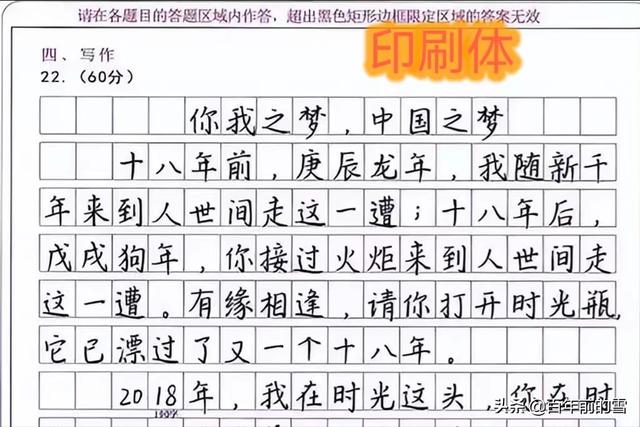 请在各题目的答题区域内作答，超出黑色矩形边框限定区域的答案无效
四、写作
22.（60分）
印刷体
你我之梦，中国之梦
十八年前，庚辰龙年，我随新千
年来到人世间走这一遭；十八年后，
戊戌狗年，你接过火炬来到人世间走
这一遭。有缘相逢，请你打开时光瓶，
它已漂过了又一个十八年。
2018年，我在时光这头，你在时
头条@百年前的雪